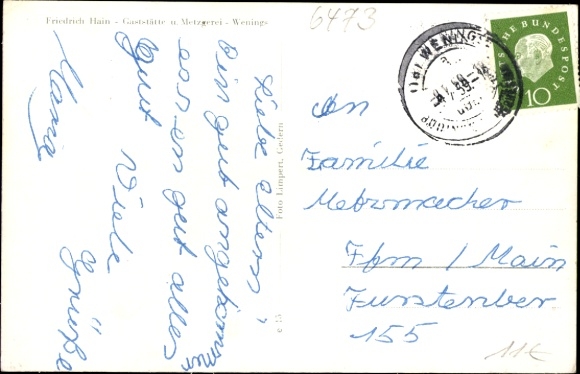 Friedrich Hain - Gaststätte u. Metzgerei - Wenings
6473
Liebe Eltern,
bin gut angekommen
essen gut alles
Gut Viele
Grüße
Foto Lampert, Gedern
DEUTSCHE BUNDESPOST
10
WENINGS
An
Familie
Metzmacher
Ffm / Main
Furstenber-
155
11€